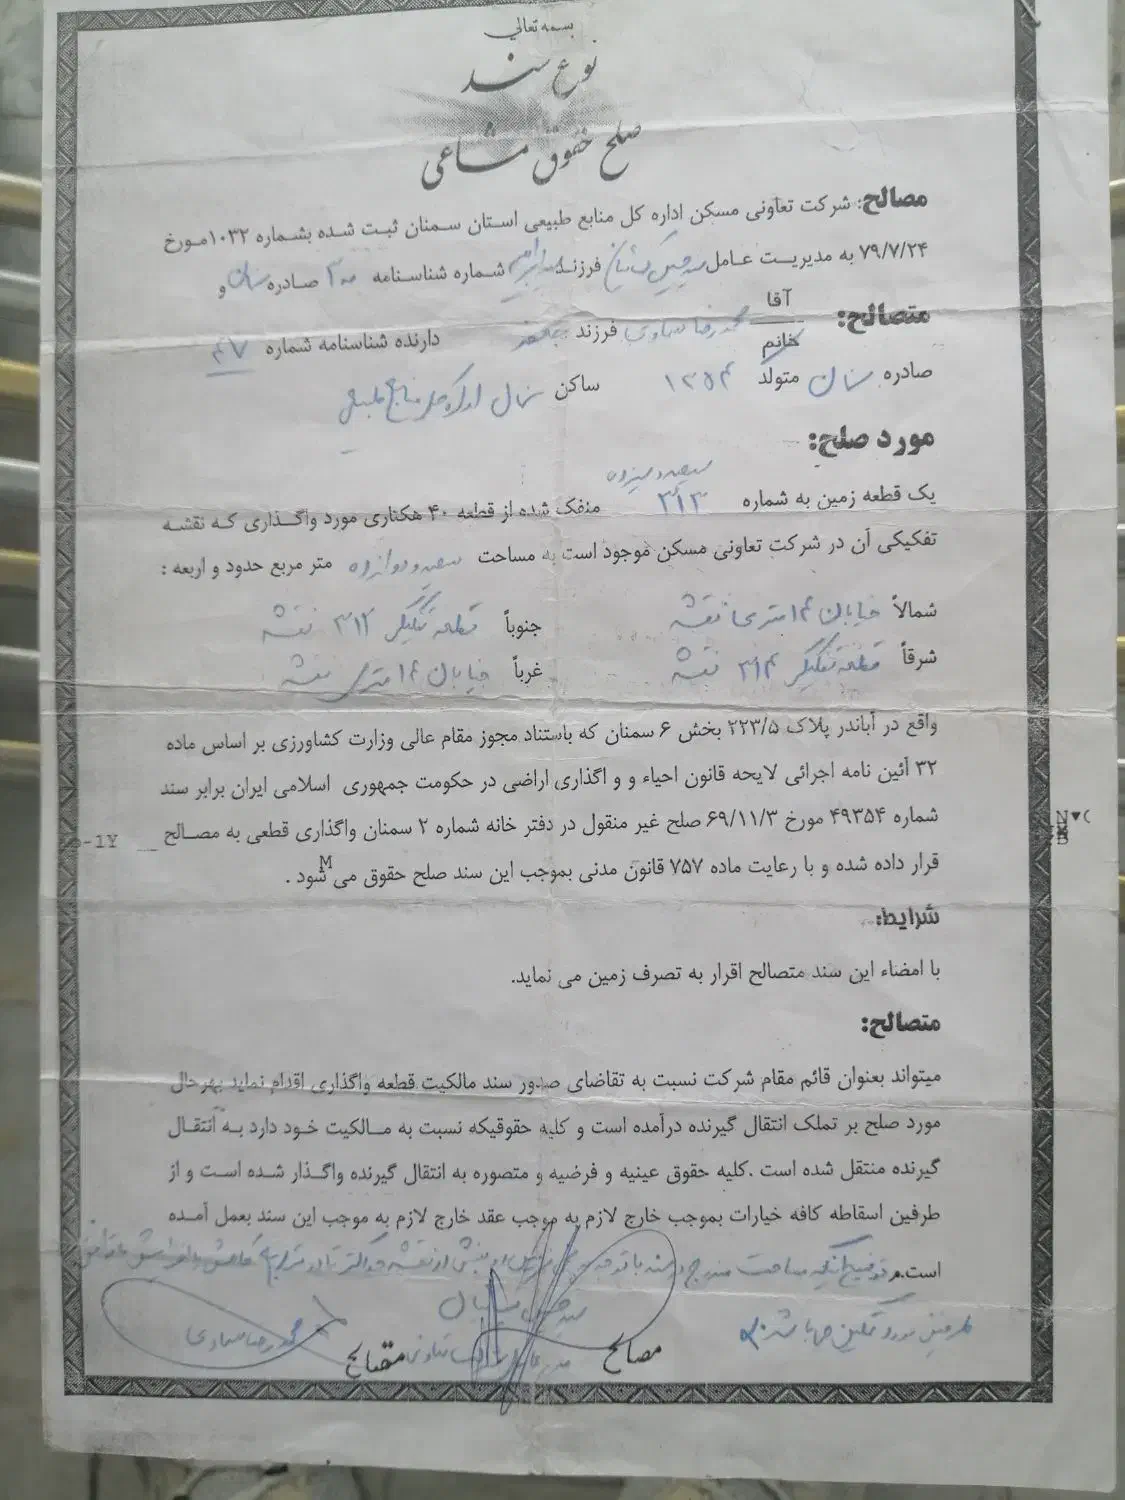 بسمه تعالی
نوع سند
صلح حقوق مشاعی
مصالح: شرکت تعاونی مسکن اداره کل منابع طبیعی استان سمنان ثبت شده بشماره ۱۰۳۲مورخ
۷۹/۷/۲۴ به مدیریت عامل سید حسن فرزند سید ابراهیم شماره شناسنامه صادره سمنان و
متصالح: آقا
خانم محمدرضا فرزند جعفر دارنده شناسنامه شماره ۴۷
صادره سمنان متولد ۱۳۵۴ ساکن سمنان اداره کل منابع طبیعی
مورد صلح:
سیصد و سیزده
یک قطعه زمین به شماره ۳۱۳ منفک شده از قطعه ۴۰ هکتاری مورد واگذاری که نقشه
تفکیکی آن در شرکت تعاونی مسکن موجود است به مساحت سیصد و دوازده متر مربع حدود و اربعه :
شمالاً خیابان ۱۴ متری نقشه جنوباً قطعه تفکیکی ۳۱۲ نقشه
شرقاً قطعه تفکیکی ۳۱۴ نقشه غرباً خیابان ۱۴ متری نقشه
واقع در آباندر پلاک ۲۲۳/۵ بخش ۶ سمنان که باستناد مجوز مقام عالی وزارت کشاورزی بر اساس ماده
۳۲ آئین نامه اجرائی لایحه قانون احیاء و و اگذاری اراضی در حکومت جمهوری اسلامی ایران برابر سند
شماره ۴۹۳۵۴ مورخ ۶۹/۱۱/۳ صلح غیر منقول در دفتر خانه شماره ۲ سمنان واگذاری قطعی به مصالح
قرار داده شده و با رعایت ماده ۷۵۷ قانون مدنی بموجب این سند صلح حقوق می شود .
شرایط:
با امضاء این سند متصالح اقرار به تصرف زمین می نماید.
متصالح:
میتواند بعنوان قائم مقام شرکت نسبت به تقاضای صدور سند مالکیت قطعه واگذاری اقدام نماید بهرحال
مورد صلح بر تملک انتقال گیرنده درآمده است و کلیه حقوقیکه نسبت به مالکیت خود دارد به انتقال
گیرنده منتقل شده است .کلیه حقوق عینیه و فرضیه و متصوره به انتقال گیرنده واگذار شده است و از
طرفین اسقاطه کافه خیارات بموجب خارج لازم به موجب عقد خارج لازم به موجب این سند بعمل آمده
است. توضیح اینکه مساحت مندرج در سند با توجه
طرفین مورد تمکین می باشد
سید حسن
مصالح متصالح محمدرضا